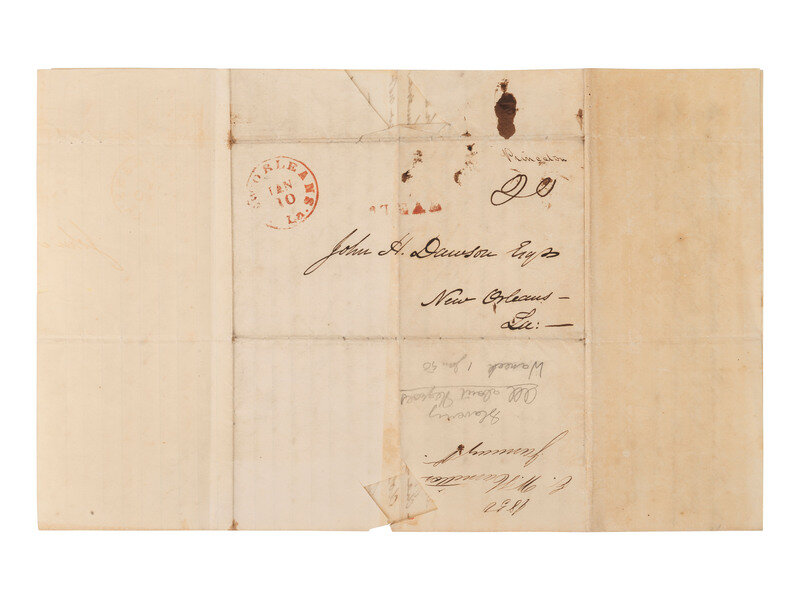 Princeton
20
W ORLEANS
JAN
10
La.
STEAM
John H. Dawson Esqr
New Orleans –
La: —
1 Jan 50
All about Negroes
Slavery
January
1850